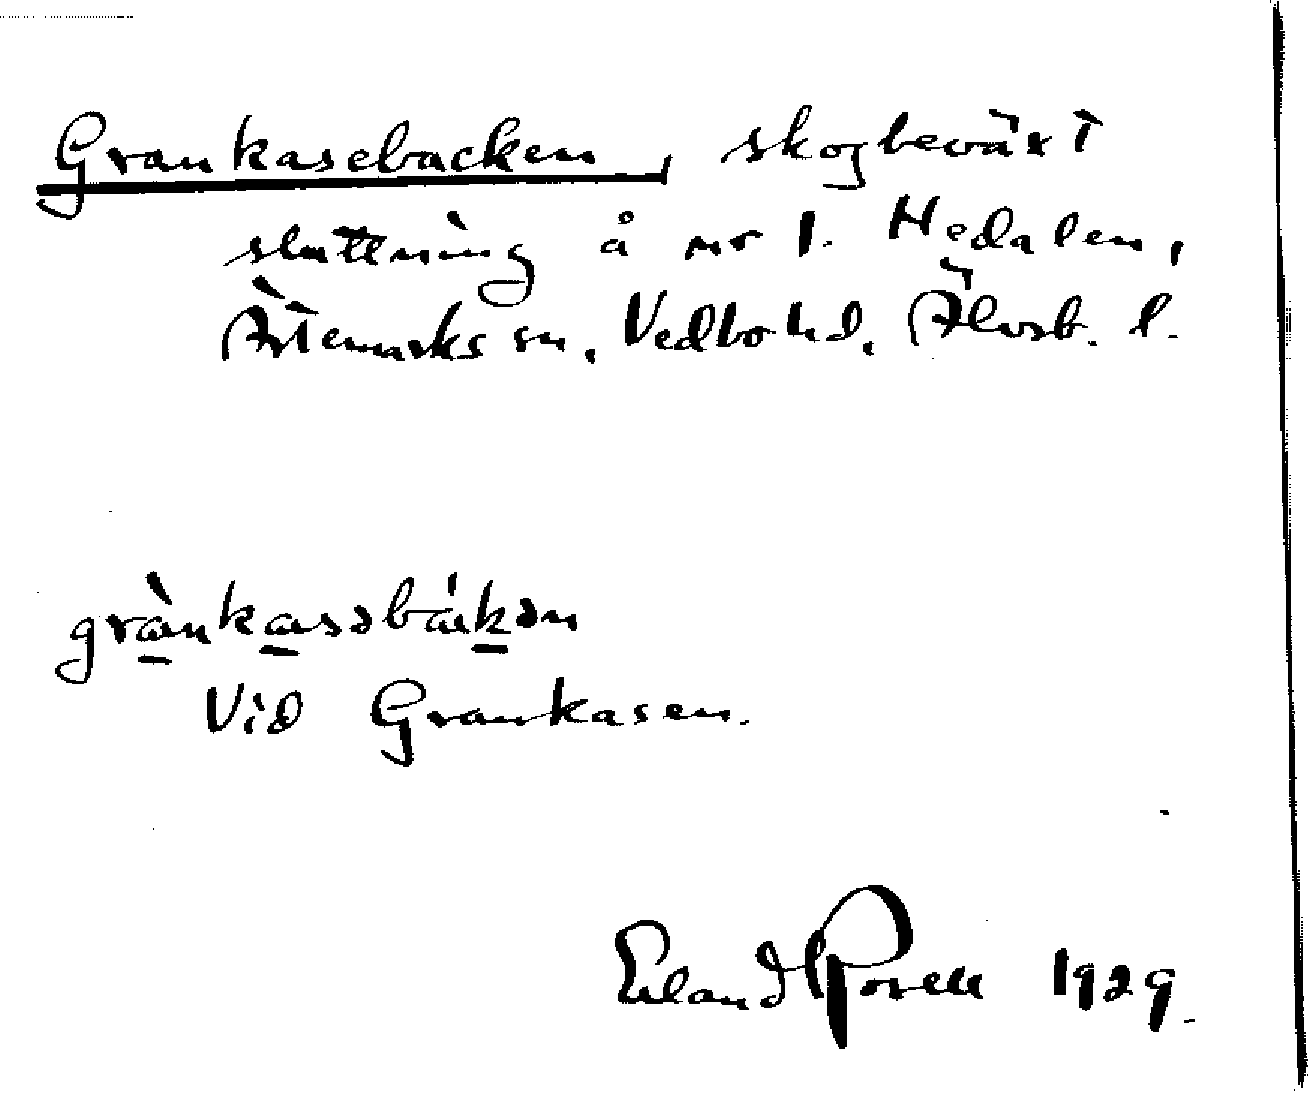 Grankasebacken, skogbeväxt
sluttning å nr 1. Hedalen,
Ärtemarks sn, Vedbo hd, Älvsb. l.
grànkasəbákən
Vid Grankasen.
Erland Rosell 1929.